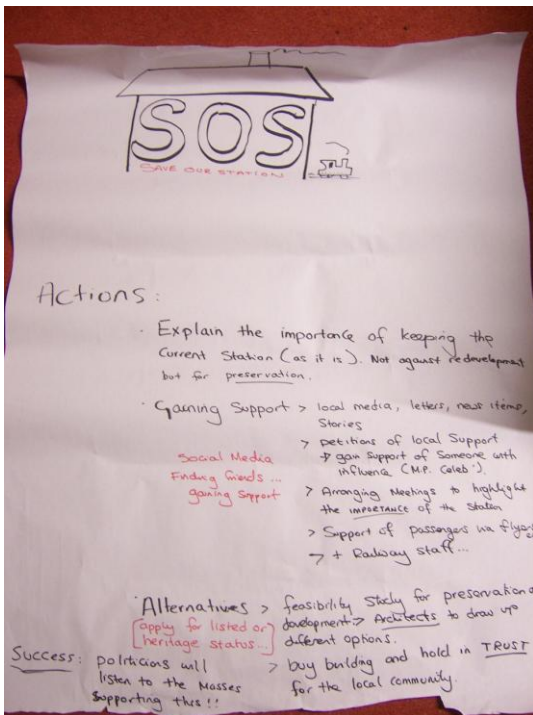 SOS
SAVE OUR STATION
Actions:
· Explain the importance of keeping the
Current Station (as it is). Not against redevelopment
but for preservation.
· Gaining Support > local media, letters, news items,
Stories
> petitions of local Support
→ gain support of someone with
influence (M.P. Celeb').
Social Media
Finding friends...
gaining support
> Arranging Meetings to highlight
the IMPORTANCE of the Station
> Support of passengers via flyers
→ + Railway staff...
· Alternatives > feasibility study for preservation &
development > Architects to draw up
different options.
[apply for listed or
heritage status...]
> buy building and hold in TRUST
for the local community.
Success: politicians will
listen to the Masses
supporting this!!